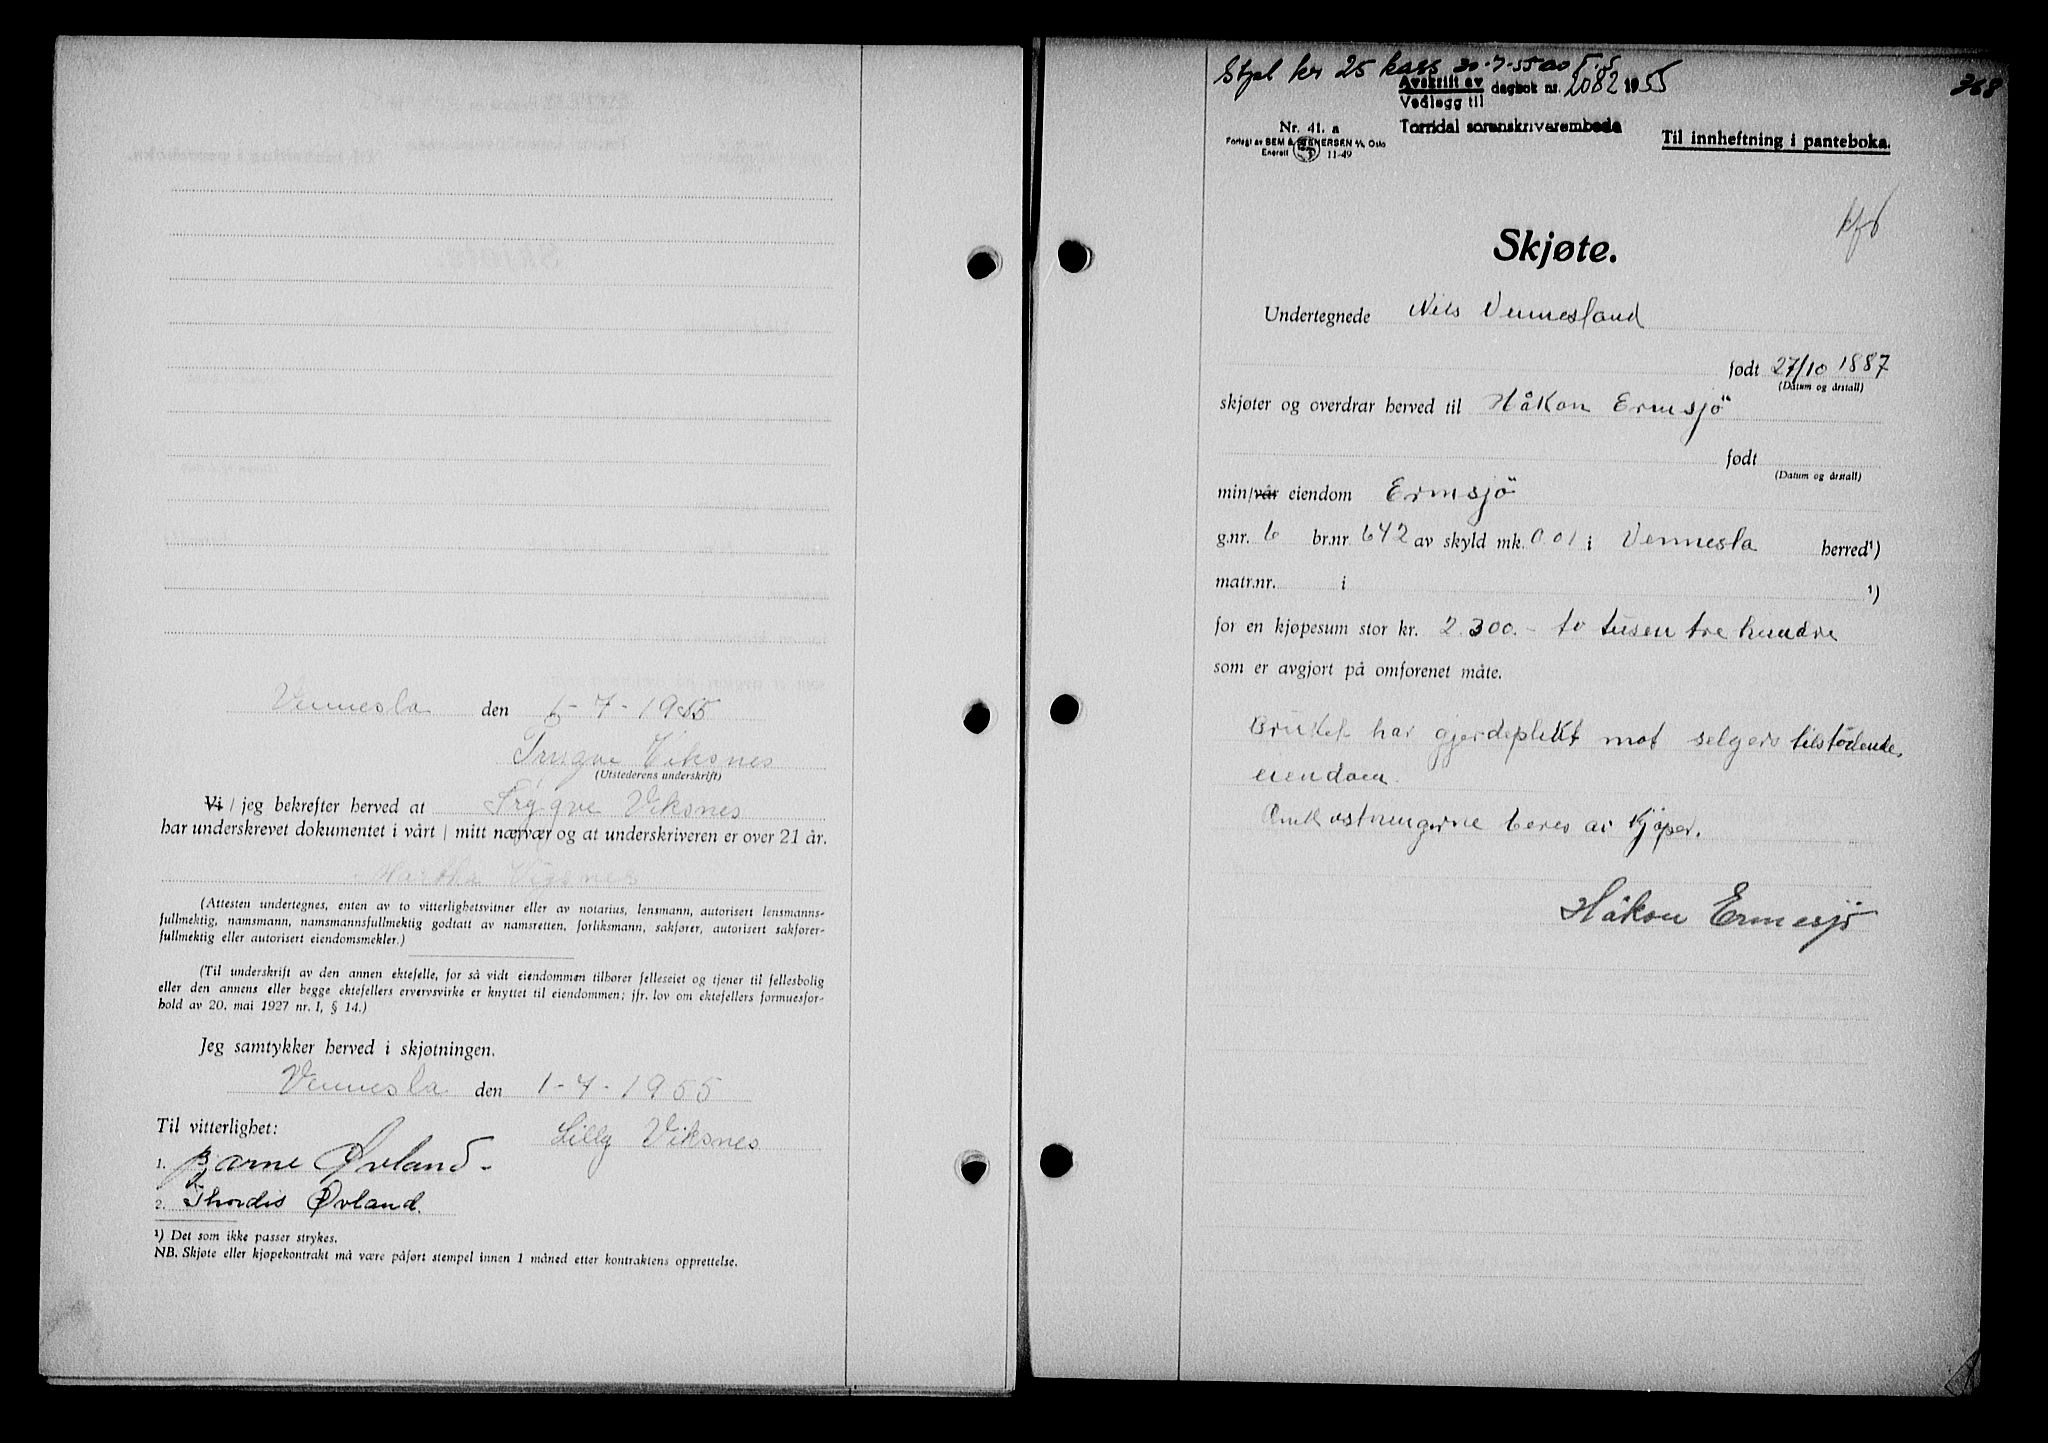 Vennesla den 1-7-1955
Trygve Viksnes
(Utstederens underskrift)
Vi / jeg bekrefter herved at Trygve Viksnes
har underskrevet dokumentet i vårt / mitt nærvær og at underskriveren er over 21 år.
Martha Vigsnes
(Attesten undertegnes, enten av to vitterlighetsvitner eller av notarius, lensmann, autorisert lensmanns-
fullmektig, namsmann, namsmannsfullmektig godtatt av namsretten, forliksmann, sakfører, autorisert sakfører-
fullmektig eller autorisert eiendomsmekler.)
(Til underskrift av den annen ektefelle, for så vidt eiendommen tilhører felleseiet og tjener til fellesbolig
eller den annens eller begge ektefellers ervervsvirke er knyttet til eiendommen; jfr. lov om ektefellers formuesfor-
hold av 20. mai 1927 nr. 1, § 14.)
Jeg samtykker herved i skjøtningen.
Vennesla den 1-7-1955
Til vitterlighet: Lilly Viksnes
1. Bjarne Øvland
2. Thordis Øvland.
¹) Det som ikke passer strykes.
NB. Skjøte eller kjøpekontrakt må være påført stempel innen 1 måned etter kontraktens opprettelse.
Stpl kr 25 kass 30-7-55
368
Avskrift av
Vedlegg til dagbok nr. 2082 1955
Torridal sorenskriverembede
Nr. 41. a
Forlagt av SEM & STENERSEN A/S, Oslo
Enerett 11-49
Til innheftning i panteboka.
Skjøte.
Undertegnede Nils Vennesland
født 27/10 1887
(Datum og årstall)
skjøter og overdrar herved til Håkon Ermsjö
født
(Datum og årstall)
min/vår eiendom Ermsjö
g.nr. 6 br.nr. 642 av skyld mk. 0.01 i Vennesla herred¹)
matr.nr. i ¹)
for en kjøpesum stor kr. 2.300.- to tusen tre hundre
som er avgjort på omforenet måte.
Bruket har gjerdeplikt mot selgers tilstödende
eiendom.
Omkostningerne beres av Kjøper.
Håkon Ermesjö